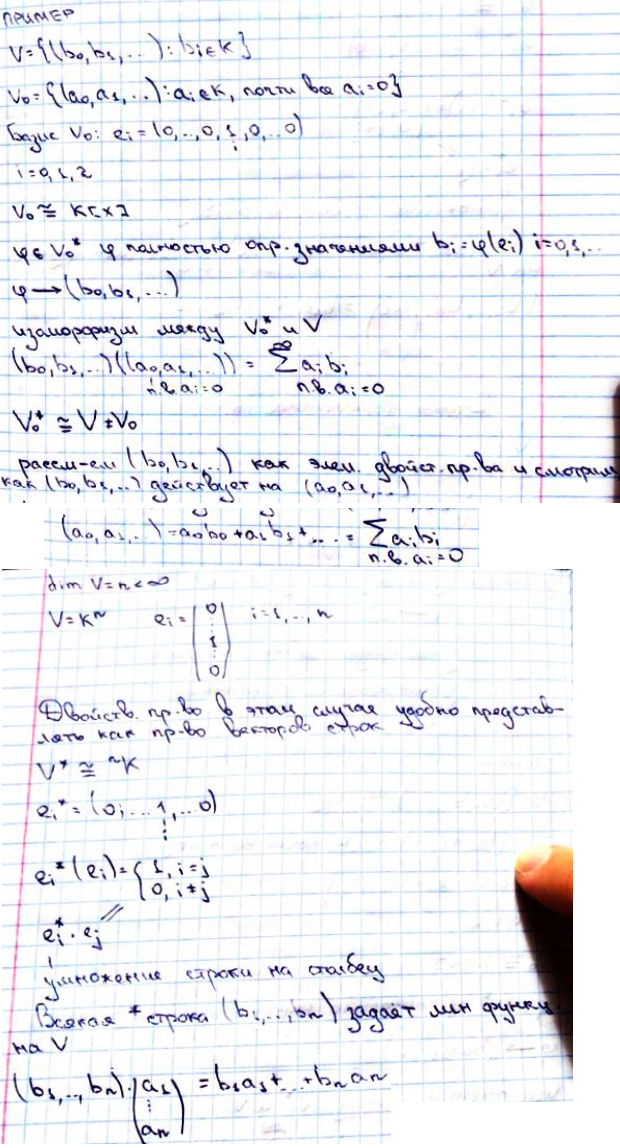 ПРИМЕР
V={(b₀,b₁,...):bᵢ∈K}
V₀={(a₀,a₁,..):aᵢ∈K, почти все aᵢ=0}
Базис V₀: eᵢ=(0,..,0,1,0,..0)
i
i=0,1,2
V₀≅K[x]
φ∈V₀* φ полностью опр. значениями bᵢ=φ(eᵢ) i=0,1,..
φ→(b₀,b₁,...)
изаморфизм между V₀* и V
(b₀,b₁,..)((a₀,a₁,..))=∑^∞aᵢbᵢ
п.в.aᵢ=0 п.в.aᵢ=0
V₀*≅V≠V₀
рассм-ем (b₀,b₁,..) как элем. двойст. пр.ва и смотрим
как (b₀,b₁,..) действует на (a₀,a₁,..)
(a₀,a₁,..)=a₀b₀+a₁b₁+...=∑aᵢbᵢ
п.в.aᵢ=0
dim V=n<∞
V=Kⁿ eᵢ=(0 ⋮ 1 ⋮ 0) i=1,..,n
Двойств. пр.во в этом случае удобно представ-
лять как пр-во векторов строк
V*≅ⁿK
eᵢ*=(0;...1,...0)
eᵢ*(eᵢ)={1, i=j
0, i≠j
eᵢ*·eⱼ
умножение строки на столбец
Всякая *строка (b₁,..,bₙ) задаёт лин функц
на V
(b₁,..,bₙ)·(a₁ ⋮ aₙ)=b₁a₁+...+bₙaₙ